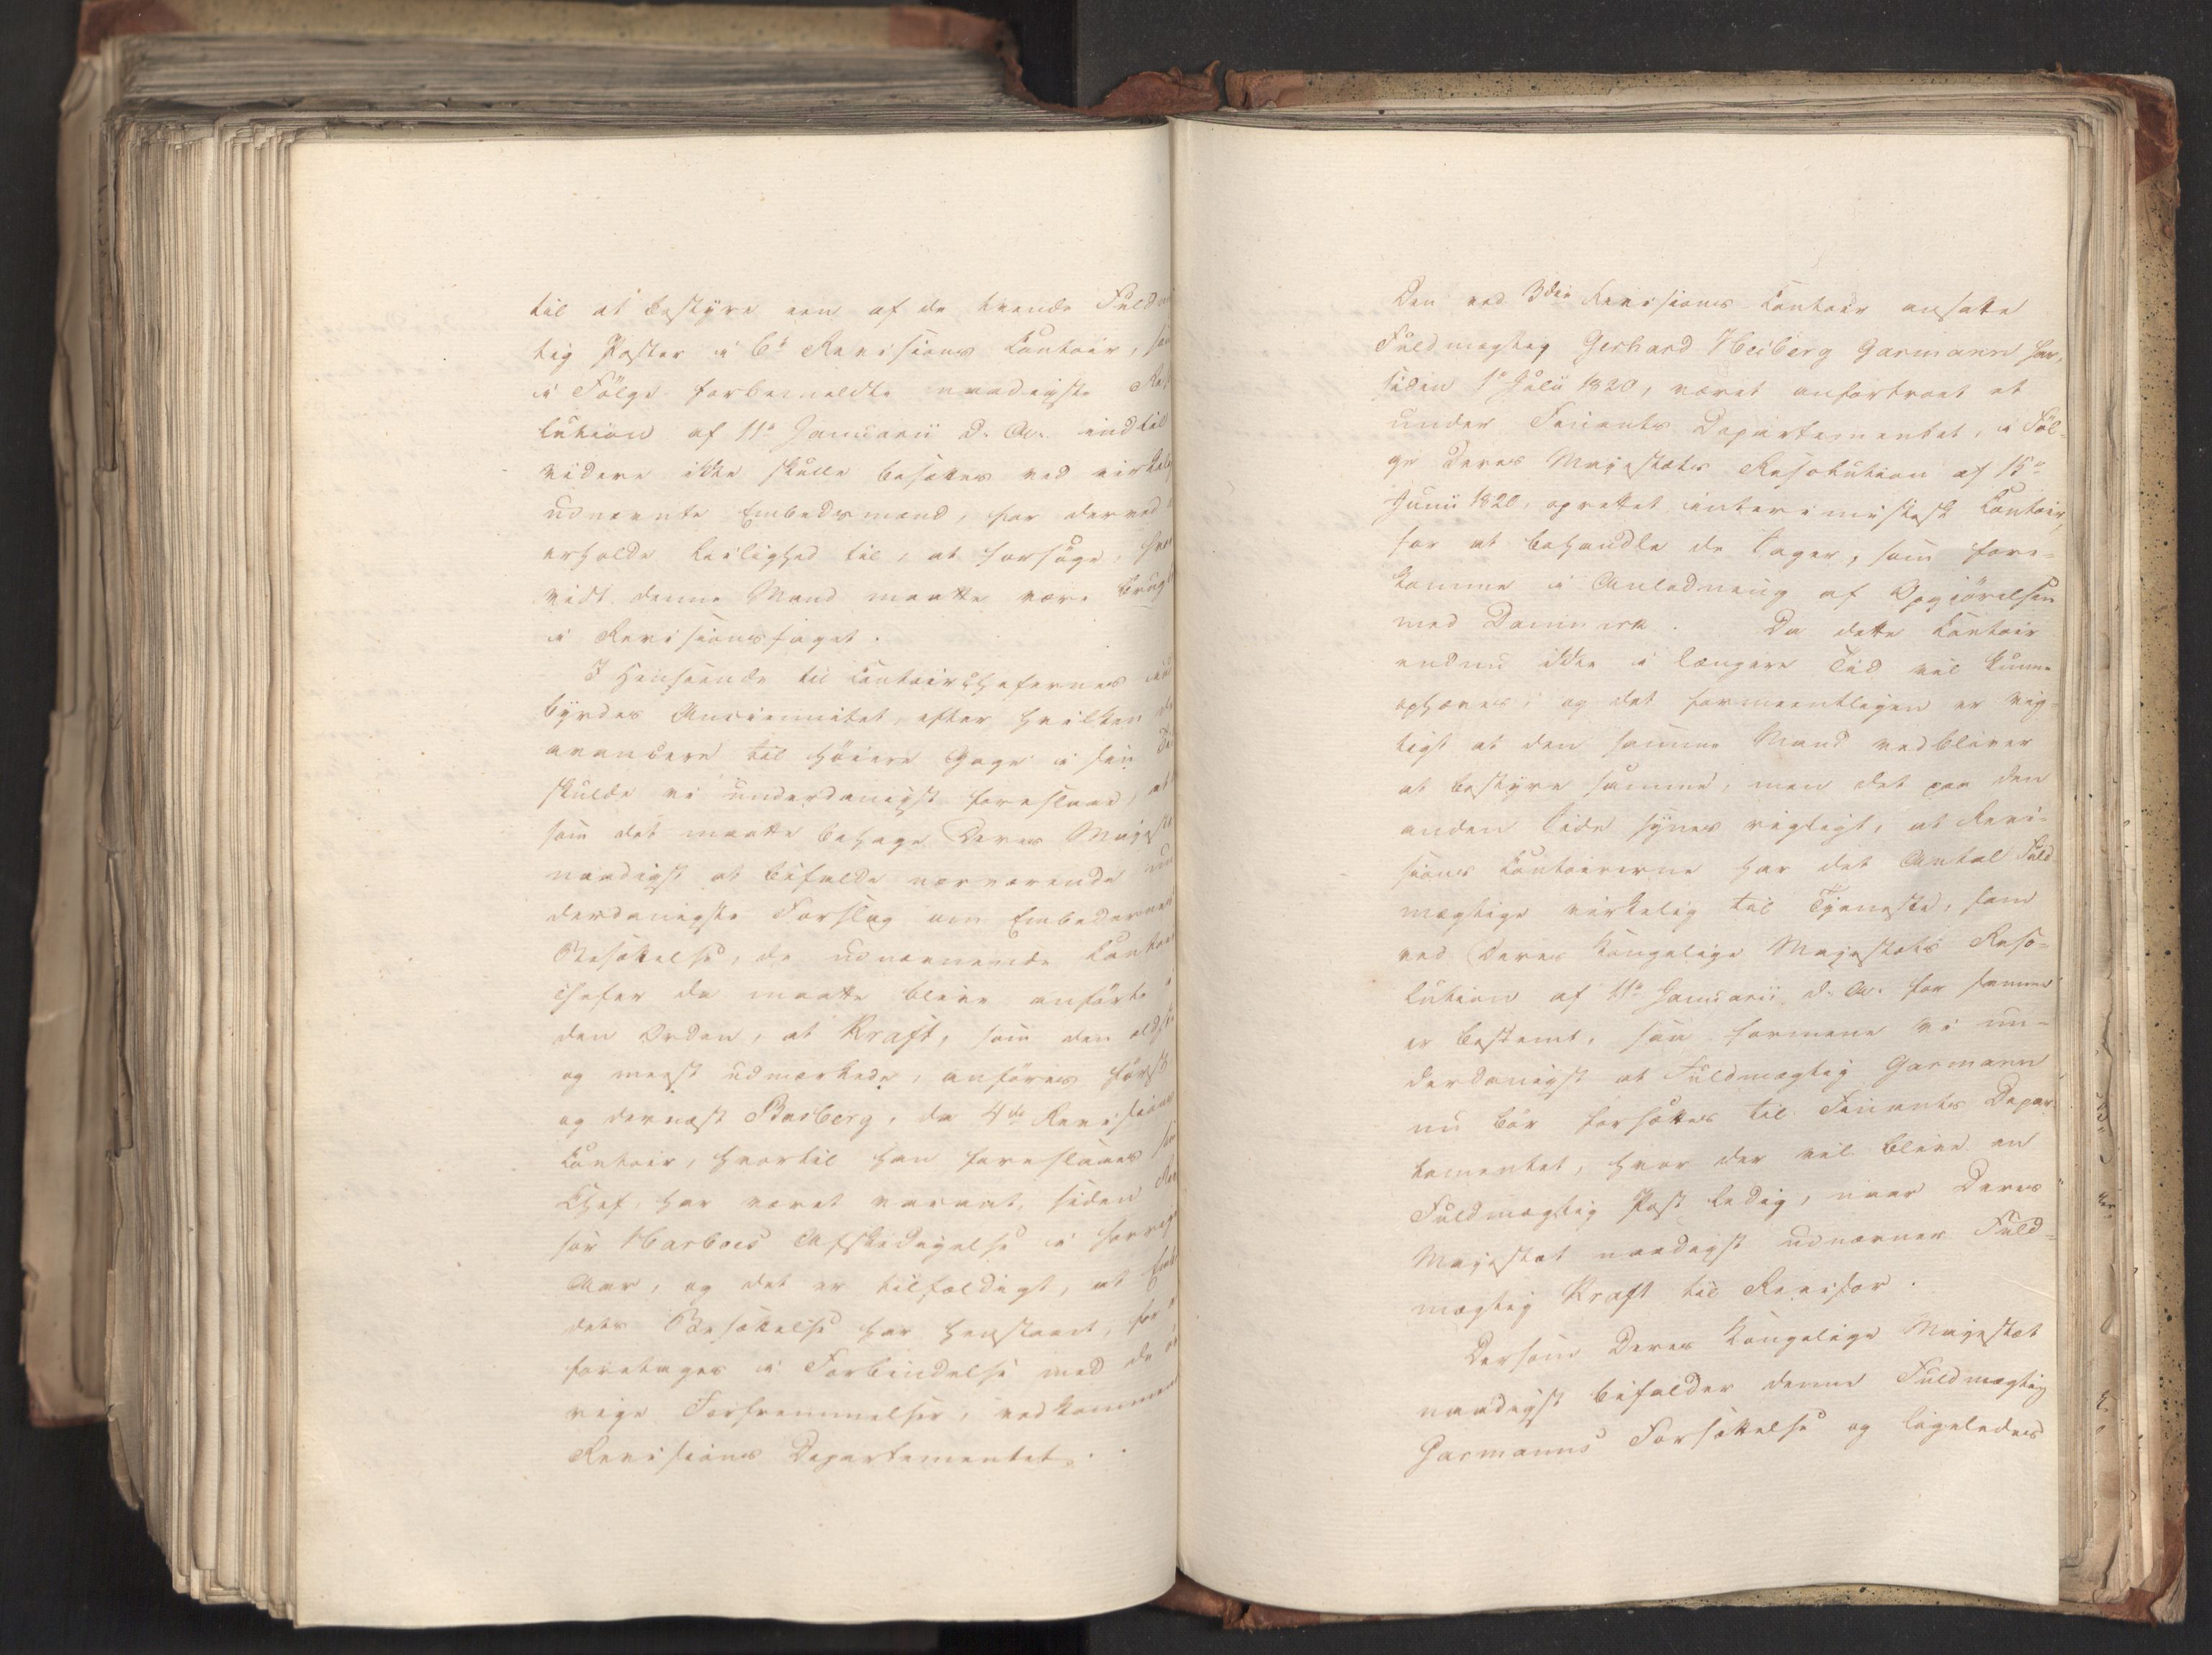 til at bestÿre een af de tvende Fuldm
tig Poster i 6te Revisions Contoir, so
i Fölge forbemeldte naadigste Res
lution af 11te Januarii d. A. indtil
videre ikke skulle besættes ved virkel
udnævnte Embedsmænd, for derved
erholde Leilighed til, at forsöge, hvor
vidt denne Mand maatte være brug
i Revisionsfaget.
I Henseende til Contoirchefernes ind
byrdes Anciennitet, efter hvilken de
avancere til höiere Gage i sin Tid
skulde vi underdanigst foreslaae, at
som det maatte behage Deres Majest
naadigst at bifalde nærværende un
derdanigste Forslag om Embedernes
Besættelse, de udnævnende Contoir
chefer da maatte blive anförte i
den Orden, at Kraft, som den ældste
og meest udmærkede, anföres först
og dernæst Busberg, da 4de Revisions
Contoir, hvortil han foreslaaes som
Chef, har været vacant, siden Revi
sor Harboes Afskedigelse i forrige
Aar, og det er tilfældigt, at Embe
dets Besættelse har henstaaet, for
foretages i Forbindelse med de öv
rige Forfremmelser, vedkommen
Revisions Departementet.
Den ved 3die Revisions Contoir ansatte
Fuldmægtig Gerhard Heiberg Garmann har,
siden 1te Julii 1820, været anfortroet et
under Finants Departementet, i Föl-
ge Deres Majestæts Resolution af 15de
Junii 1820, oprettet interimistisk Contoir,
for at behandle de Sager, som fore-
komme i Anledning af Opgjörelsen
med Danmark. Da dette Contoir
endnu ikke i længere Tid vil kunne
ophæves, og det formeentligen er vig-
tigt at den samme Mand vedbliver
at bestyre samme, men det paa den
anden Side synes vigtigt, at Revi-
sions Contoirerne har det Antal Fuld
mægtige virkelig til Tjeneste, som
ved Deres Kongelige Majestæts Reso-
lution af 11te Januarii d. A. for samme
er bestemt, saa formene vi un-
derdanigst at Fuldmægtig Garmann
nu bör forsættes til Finants Depar
tementet, hvor der vil blive en
Fuldmægtig Post ledig, naar Deres
Majestæt naadigst udnævner Fuld-
mægtig Kraft til Revisor.
Dersom Deres Kongelige Majestæt
naadigst bifalder denne Fuldmægtig
Garmanns Forsættelse og ligeledes